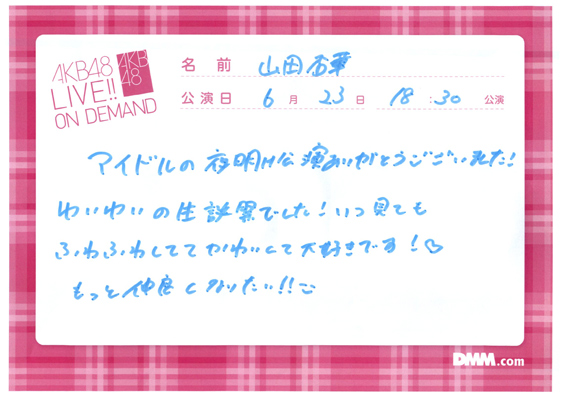 AKB48
LIVE!!
ON DEMAND
AKB
48
名前 山田杏華
公演日 6月23日 18:30公演
アイドルの夜明け公演ありがとうございました!
わいわいの生誕祭でした!いつ見ても
ふわふわしててかわいくて大好きです!♡
もっと仲良くなりたい!!
DMM.com